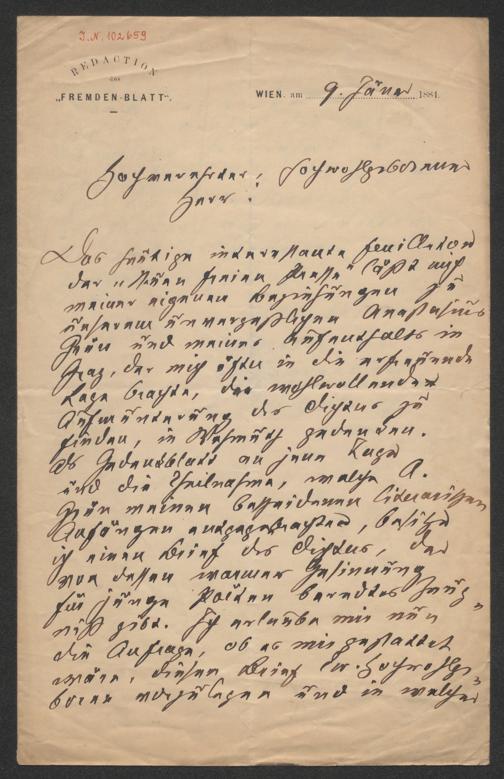 I.N. 102659
REDACTION
DES
„FREMDEN-BLATT“.
WIEN, am 9. Jäner 1881.
Hochverehrter, hochwohlgeborener
Herr!
Das heutige interessante Feuilleton
der „Neuen freien Presse“ läßt mich
meiner eigenen Beziehungen zu
unserem unvergeßlichen Anastasius
Grün und meines Aufenthalts in
Graz, der mich öfter in die erfreuende
Lage brachte, die wohlwollende
Aufmunterung des Dichters zu
finden, in Wehmuth gedenken.
Als Gedenkblatt an jene Tage
und die Theilnahme, welche A.
Grün meinen bescheidenen literarischen
Anfängen entgegenbrachte, besitze
ich einen Brief des Dichters, der
von dessen warmer Gesinnung
für junge Poëten beredtes Zeug-
niß gibt. Ich erlaube mir nun
die Anfrage, ob es mir gestattet
wäre, diesen Brief Ew. Hochwohlge-
boren vorzulegen und in welcher